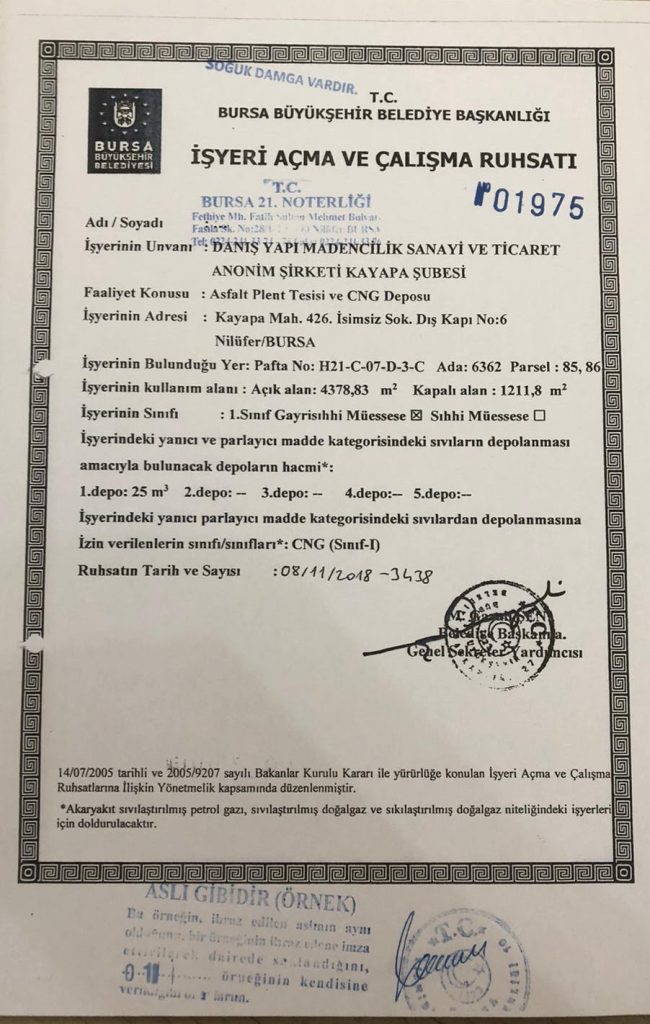 SOĞUK DAMGA VARDIR.
T.C.
BURSA BÜYÜKŞEHİR BELEDİYE BAŞKANLIĞI
BURSA
BÜYÜKŞEHİR
BELEDİYESİ
İŞYERİ AÇMA VE ÇALIŞMA RUHSATI
T.C.
BURSA 21. NOTERLİĞİ
№ 01975
Fethiye Mh. Fatih Sultan Mehmet Bulvarı
Adı / Soyadı :
İşyerinin Unvanı : DANIŞ YAPI MADENCİLİK SANAYİ VE TİCARET
ANONİM ŞİRKETİ KAYAPA ŞUBESİ
Faaliyet Konusu : Asfalt Plent Tesisi ve CNG Deposu
İşyerinin Adresi : Kayapa Mah. 426. İsimsiz Sok. Dış Kapı No:6
Nilüfer/BURSA
İşyerinin Bulunduğu Yer: Pafta No: H21-C-07-D-3-C Ada: 6362 Parsel : 85, 86
İşyerinin kullanım alanı : Açık alan: 4378,83 m² Kapalı alan : 1211,8 m²
İşyerinin Sınıfı : 1.Sınıf Gayrisıhhi Müessese ☒ Sıhhi Müessese ☐
İşyerindeki yanıcı ve parlayıcı madde kategorisindeki sıvıların depolanması
amacıyla bulunacak depoların hacmi*:
1.depo: 25 m³ 2.depo: -- 3.depo: -- 4.depo:-- 5.depo:--
İşyerindeki yanıcı parlayıcı madde kategorisindeki sıvılardan depolanmasına
İzin verilenlerin sınıfı/sınıfları*: CNG (Sınıf-I)
Ruhsatın Tarih ve Sayısı : 08/11/2018 - 3438
Belediye Başkanı a.
Genel Sekreter Yardımcısı
14/07/2005 tarihli ve 2005/9207 sayılı Bakanlar Kurulu Kararı ile yürürlüğe konulan İşyeri Açma ve Çalışma
Ruhsatlarına İlişkin Yönetmelik kapsamında düzenlenmiştir.
*Akaryakıt sıvılaştırılmış petrol gazı, sıvılaştırılmış doğalgaz ve sıkılaştırılmış doğalgaz niteliğindeki işyerleri
için doldurulacaktır.
ASLI GİBİDİR (ÖRNEK)
Bu örneğin, ibraz edilen aslının aynı
olduğunu, bir örneğinin ibraz edene imza
ettirilerek dairede saklandığını,
örneğinin kendisine
T.C.